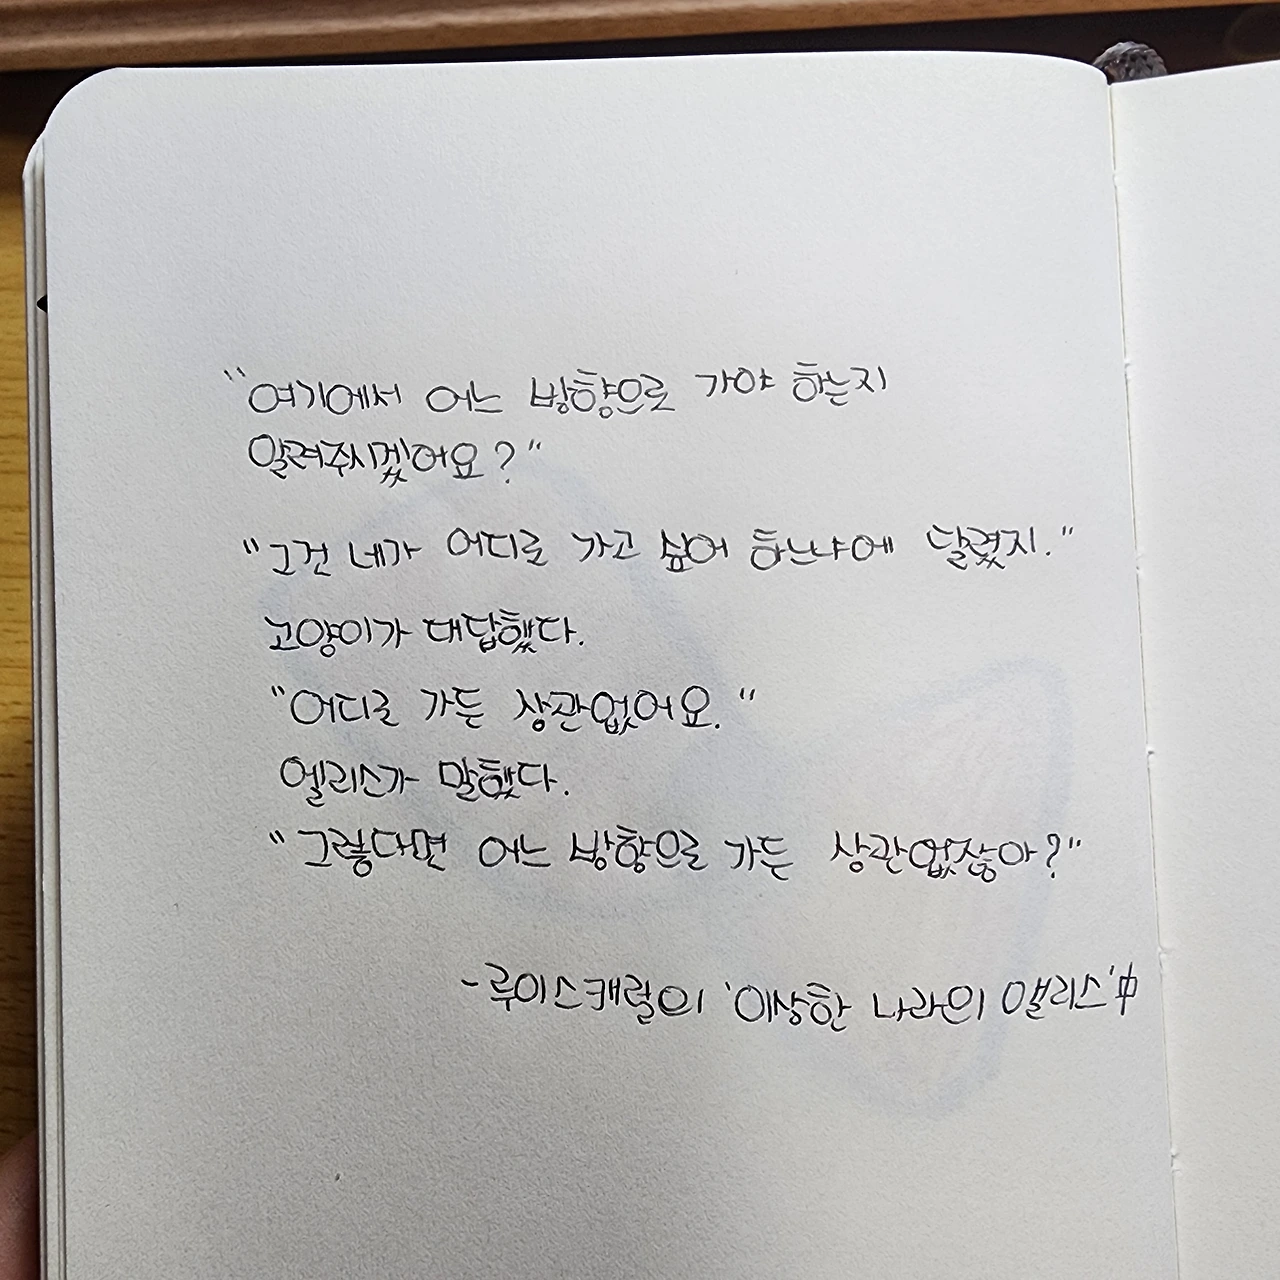 "여기에서 어느 방향으로 가야 하는지
알려주시겠어요?"
"그건 네가 어디로 가고 싶어 하느냐에 달렸지."
고양이가 대답했다.
"어디로 가든 상관없어요."
엘리스가 말했다.
"그렇다면 어느 방향으로 가든 상관없잖아?"
-루이스캐럴의 '이상한 나라의 앨리스'中